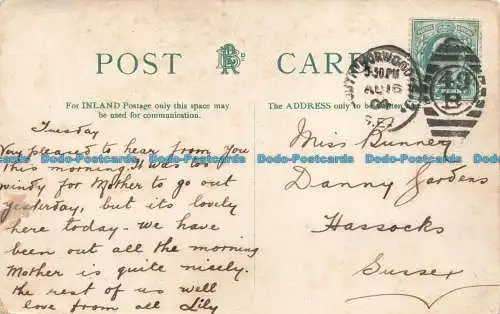 POST CARD
For INLAND Postage only this space may
be used for communication.
The ADDRESS only to be
Tuesday
Very pleased to hear from you
this morning. It was too
windy for Mother to go out
yesterday, but its lovely
here today - We have
been out all the morning
Mother is quite nicely.
the rest of us well
love from all Lily
NORWOOD
5-30 PM
AU 16
04
S.E.
49
B
Miss Bunney
Danny Gardens
Hassocks
Sussex
Bodo-Postcards Bodo-Postcards Bodo-Postcards Bodo-Postcards